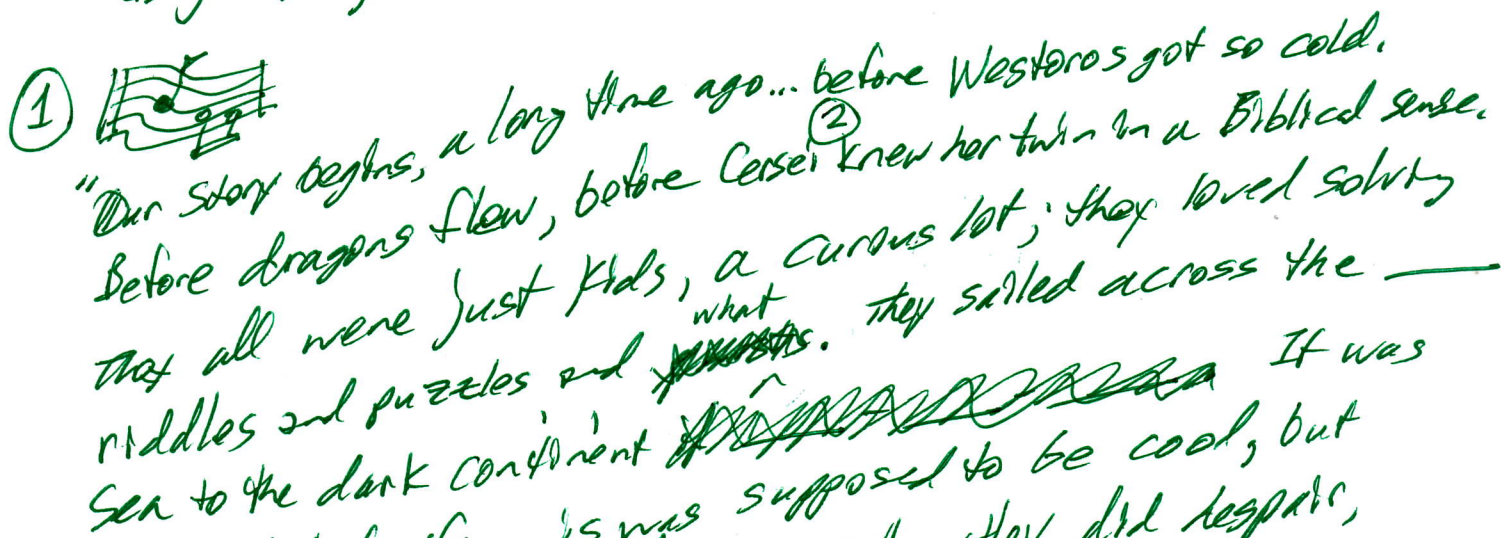 ①
"Our story begins, a long time ago... before Westoros got so cold.
②
Before dragons flew, before Cersei knew her twin in a Biblical sense.
They all were just kids, a curous lot; they loved solving
what
riddles and puzzles and. They sailed across the ___
Sea to the dark continent It was
is was supposed to be cool, but
they did despair,